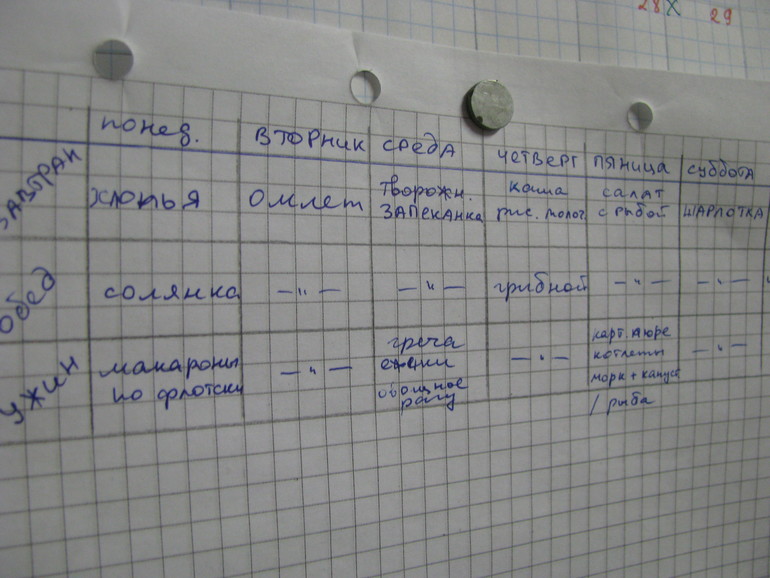 28 X 29
понед. ВТОРНИК СРЕДА ЧЕТВЕРГ ПЯНИЦА СУББОТА
ЗАВТРАК хлопья ОМЛЕТ Творожн. каша САЛАТ
ЗАПЕКАНКА рис. молоч С РЫБОЙ ШАРЛОТКА
Обед солянка —"— —"— грибной —"— —"—
УЖИН макароны —"— греча —"— карт. пюре —"—
по флотски котлеты
овощное морк + капуса
рагу / рыба